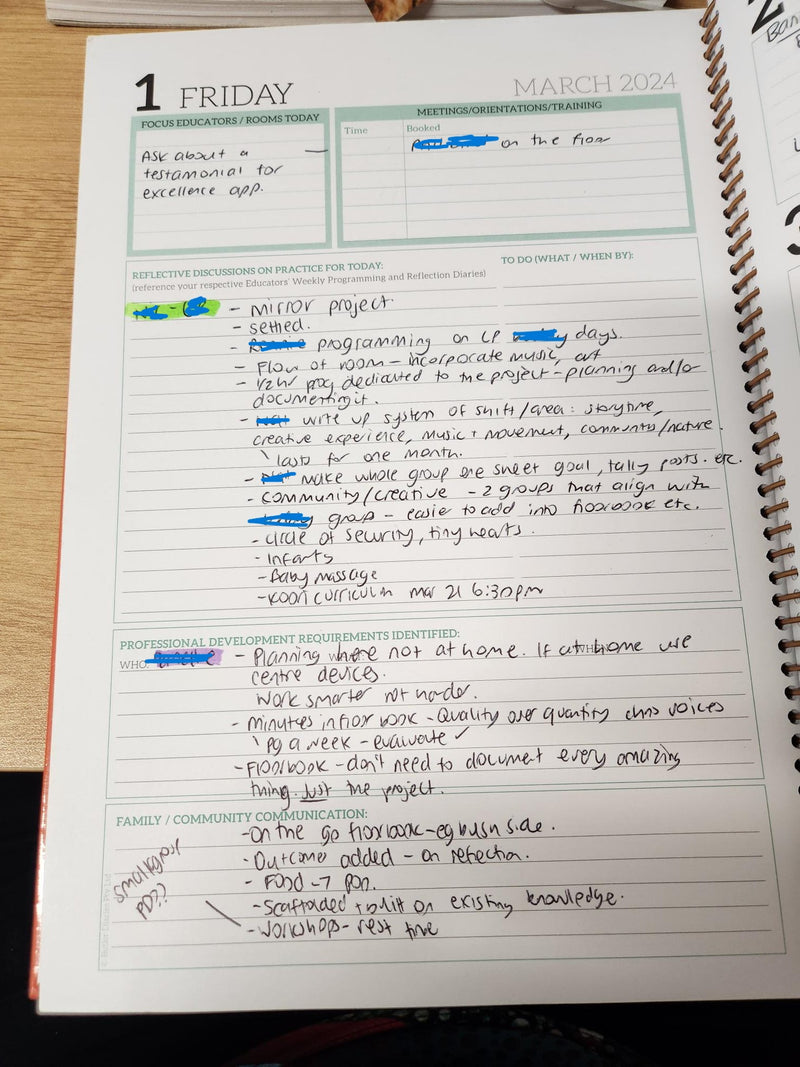 1 FRIDAY
MARCH 2024
FOCUS EDUCATORS / ROOMS TODAY
Ask about a
testamonial for
excellence app.
MEETINGS/ORIENTATIONS/TRAINING
Time Booked
on the floor
REFLECTIVE DISCUSSIONS ON PRACTICE FOR TODAY:
(reference your respective Educators' Weekly Programming and Reflection Diaries)
TO DO (WHAT / WHEN BY):
- Mirror project.
- settled.
- programming on LP days.
- Flow of room - incorporate music, art
- 1/2 hr prog dedicated to the project - planning and/or
documenting it.
- write up system of shift/area: storytime,
creative experience, music + movement, community/nature.
\ lasts for one month.
- make whole group one sheet goal, tally posts. etc.
- Community/creative - 2 groups that align with
group - easier to add into floorbook etc.
- circle of security, tiny hearts.
- Infants
- Baby massage
- Koori curriculum mar 21 6:30pm
PROFESSIONAL DEVELOPMENT REQUIREMENTS IDENTIFIED:
WHO:
- Planning here not at home. If at home use
centre devices.
Work smarter not harder.
- minutes in floor book - Quality over quantity chns voices
\ pg a week - evaluate ✓
- Floorbook - don't need to document every amazing
thing. Just the project.
FAMILY / COMMUNITY COMMUNICATION:
- on the go floorbook - eg bush side.
- Outcomes added - on reflection.
- Food -7 pm.
- Scaffolded + built on existing knowledge.
- Workshops - rest time
Small group
PD??